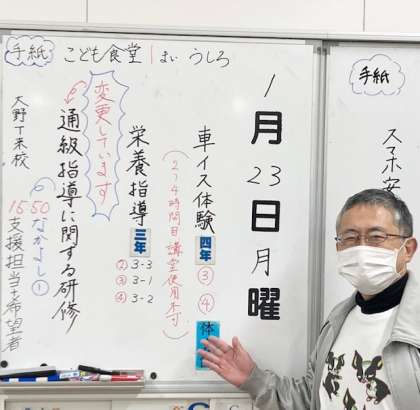 手紙 こども食堂 1まい うしろ
1月23日月曜
車イス体験 四年 ③ ④
(2〜4時間目講堂使用不可)
栄養指導 三年
② 3-3
③ 3-1
④ 3-2
変更しています
通級指導に関する研修
15:50 なかよし①
大野T来校
支援担当と希望者
手紙